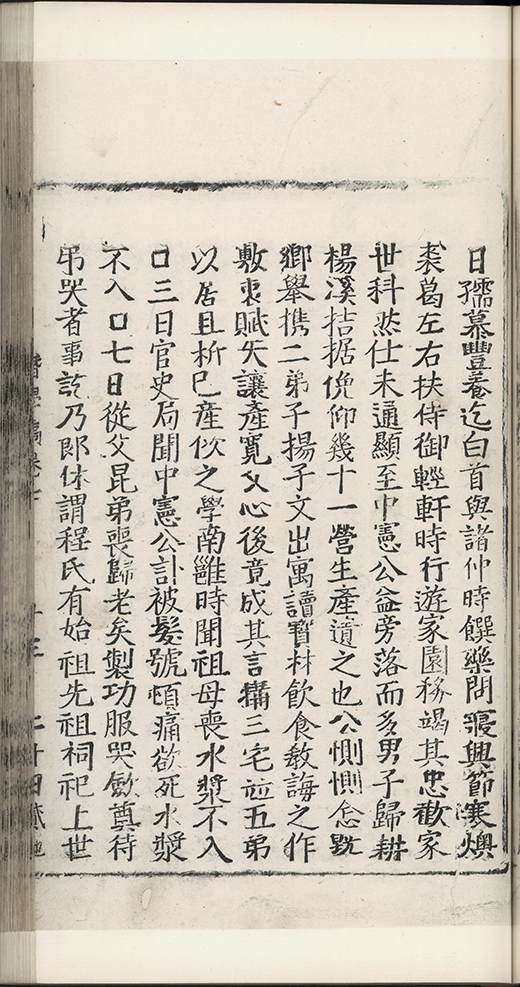 日孺慕豐養迄白首與諸仲時饌藥問寢興節寒燠
裘葛左右扶侍御輕軒時行遊家園務竭其忠歡家
世科然仕未通顯至中憲公益旁落而多男子歸耕
楊溪拮据俛仰幾十一營生產遺之也公惻惻念旣
鄉舉携二弟子揚子文出寓讀寳林飲食敎誨之作
敷衷賦矢讓產寛父心後竟成其言搆三宅竝五弟
以居且析巳產佽之學南雝時聞祖母喪水漿不入
口三日官史局聞中憲公訃被髮號頓痛欲死水漿
不入口七日從父昆弟喪歸老矣製功服哭斂奠待
弔哭者事訖乃郎休謂程氏有始祖先祖祠祀上世